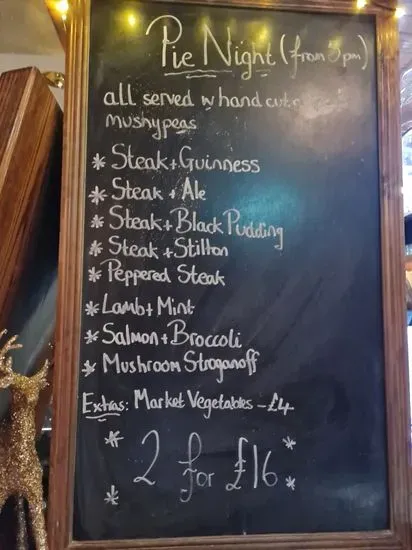 Pie Night (from 5pm)
all served w hand cut
mushypeas
* Steak + Guinness
* Steak + Ale
* Steak + Black Pudding
* Steak + Stilton
* Peppered Steak
* Lamb + Mint
* Salmon + Broccoli
* Mushroom Stroganoff
Extras: Market Vegetables - £4
* 2 for £16 *